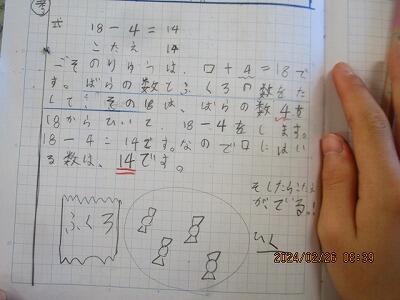 考
式 18-4=14
こたえ 14
そのりゆうは、□+4=18で
す。ばらの数とふくろの数をた
して、その18は、ばらの数4を
18からひいて、18-4をします。
18-4=14です。なので□にはい
る数は、14です。
そしたらこたえ
がでる。!
ひく
ふくろ
2024/02/26 08:39